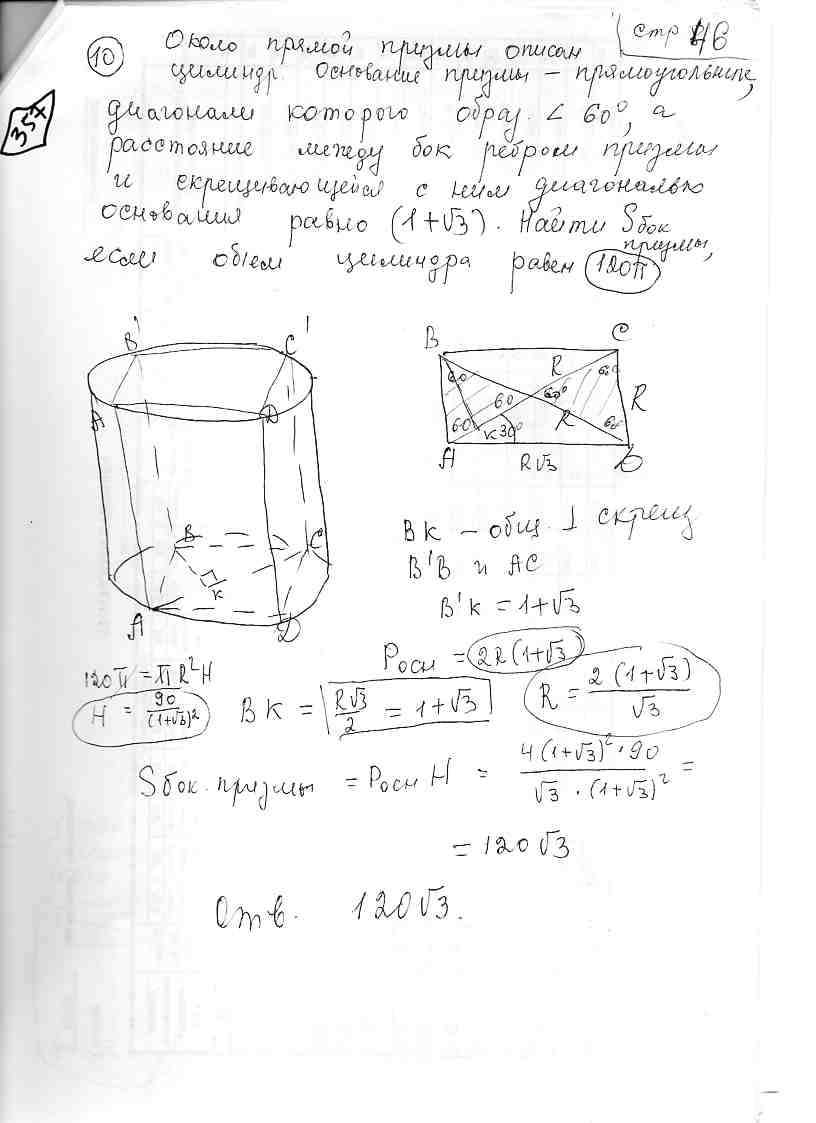 стр 46
10 Около прямой призмы описан
цилиндр. Основание призмы – прямоугольник,
354
диагонали которого образ. ∠ 60°, а
расстояние между бок ребром призмы
и скрещивающейся с ним диагональю
основания равно (1+√3). Найти Sбок
призмы,
если объем цилиндра равен 120π
B' C'
A D
B C
K
A D
B C
60 R 60
60 60° R
60 K 30° R 60
A R√3 D
BK – общ. ⊥ скрещ
B'B и AC
B'K = 1+√3
Pосн = 2R(1+√3)
120π = πR²H
H = 90/(1+√3)² BK = R√3/2 = 1+√3 R = 2(1+√3)/√3
Sбок. призмы = Pосн H = 4(1+√3)²·90/√3·(1+√3)² =
= 120√3
Отв. 120√3.